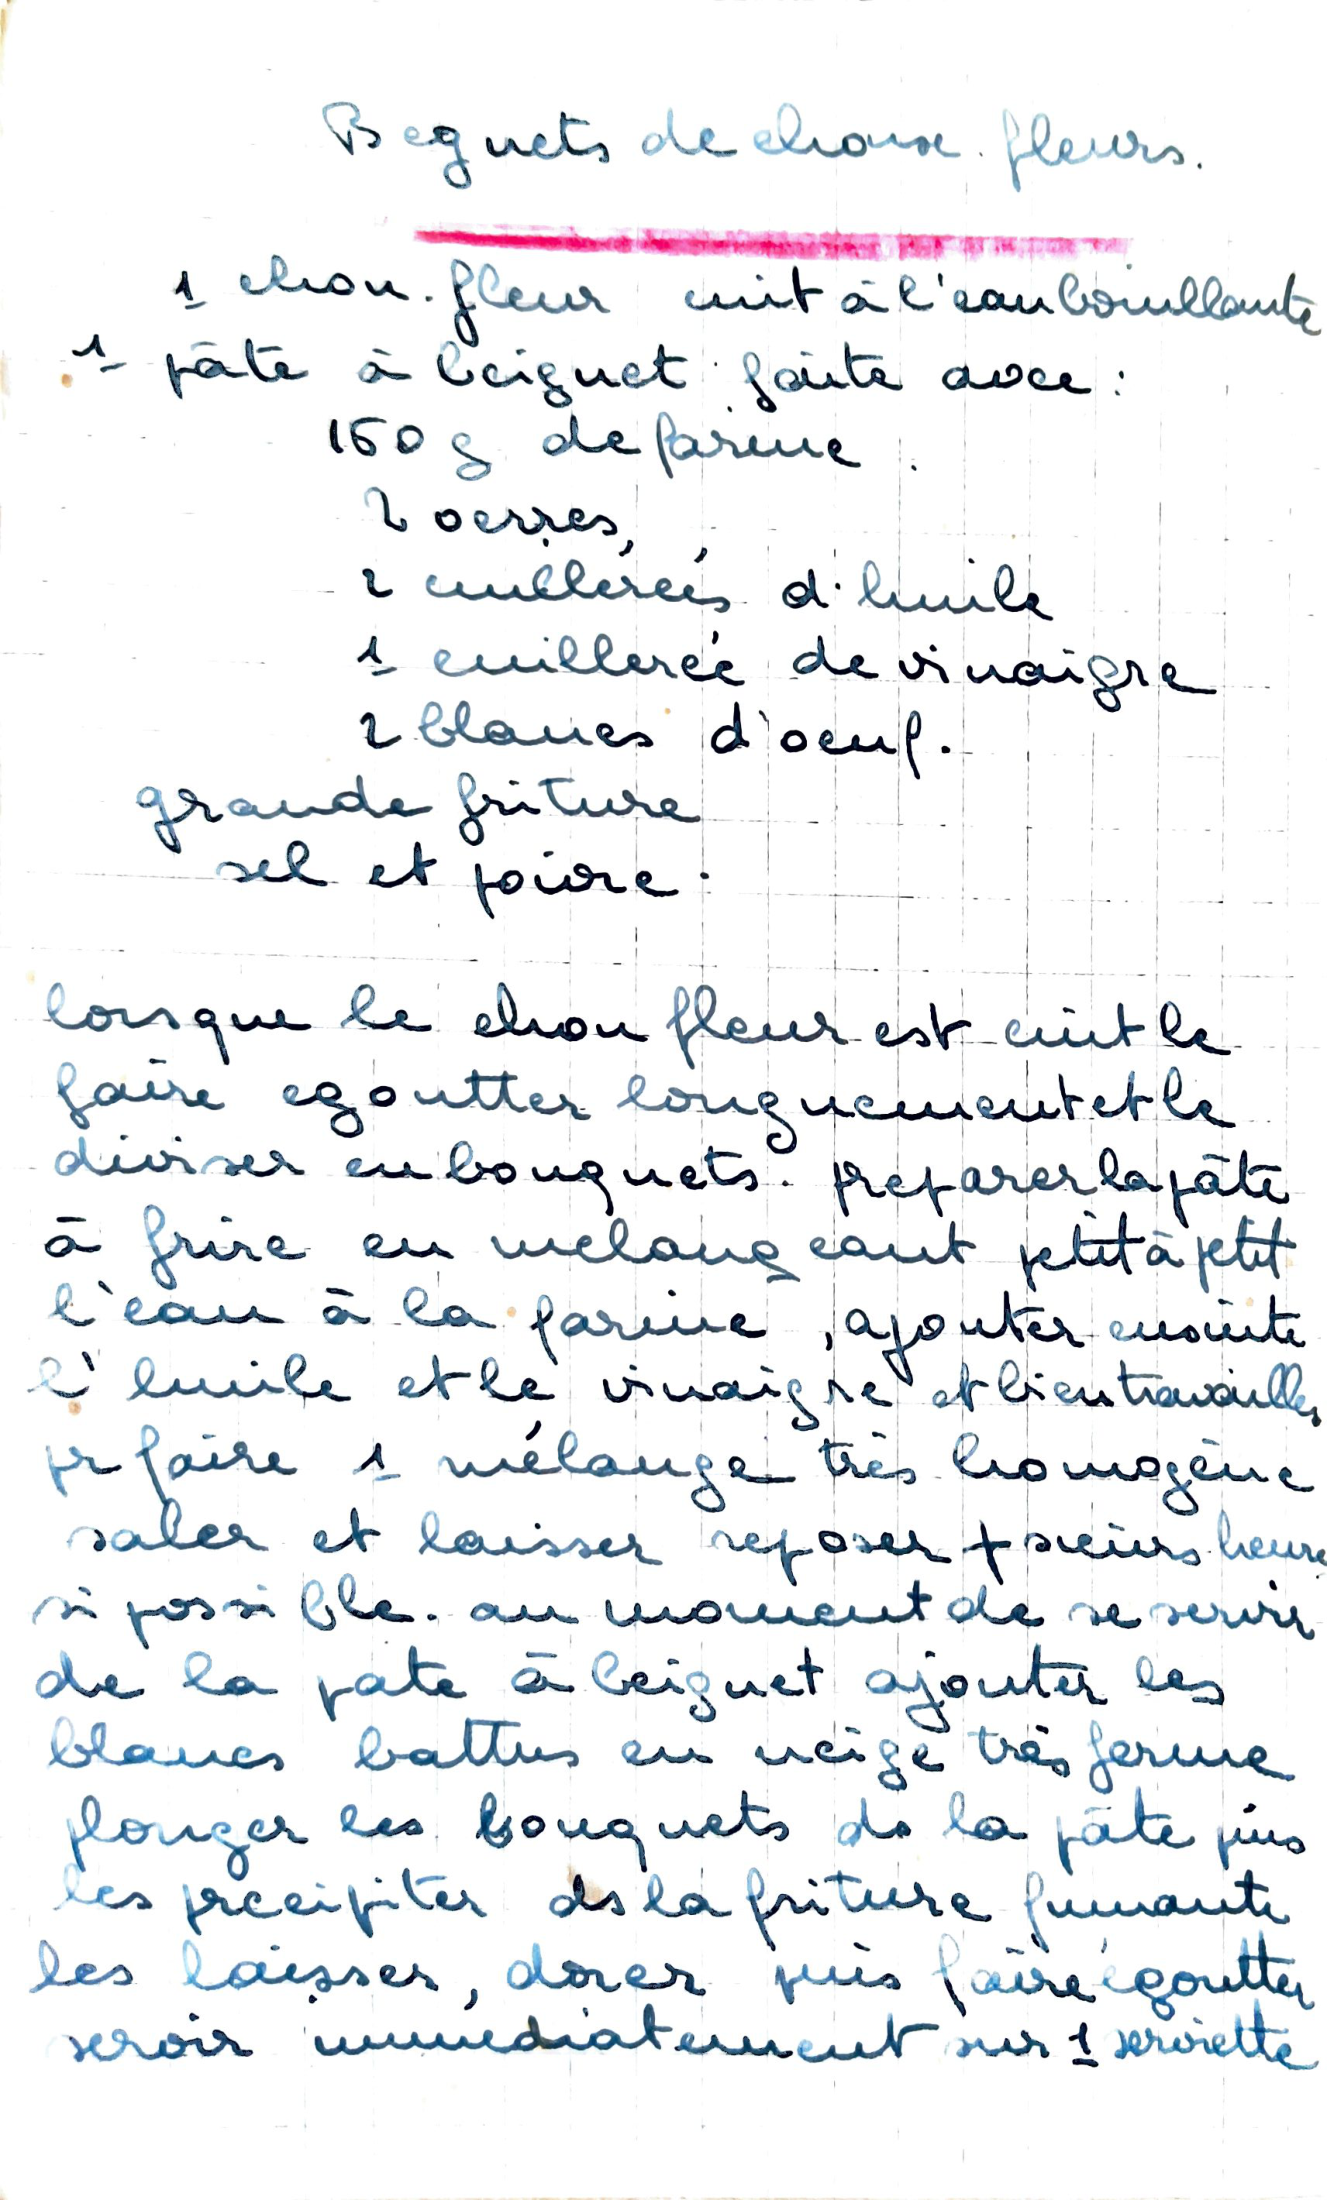 Begnets de choux. fleurs.
1 chou. fleur cuit à l'eau bouillante
1 pâte à beignet faite avec :
150 g de farine
2 verres
2 cuillerées d'huile
1 cuillerée de vinaigre
2 blancs d'oeuf.
grande friture
sel et poivre.
lorsque le chou fleur est cuit le
faire egoutter longuement et le
diviser en bouquets. preparer la pâte
à frire en melangeant petit à petit
l'eau à la farine, ajouter ensuite
l'huile et le vinaigre et bien travailler
pr faire 1 mélange très homogène
saler et laisser reposer + sieurs heures
si possible. au moment de se servir
de la pate à beignet ajouter les
blancs battus en neige très ferme
plonger les bouquets ds la pâte puis
les precipiter ds la friture fumante
les laisser, dorer puis faire égoutter
servir immediatement sur 1 serviette